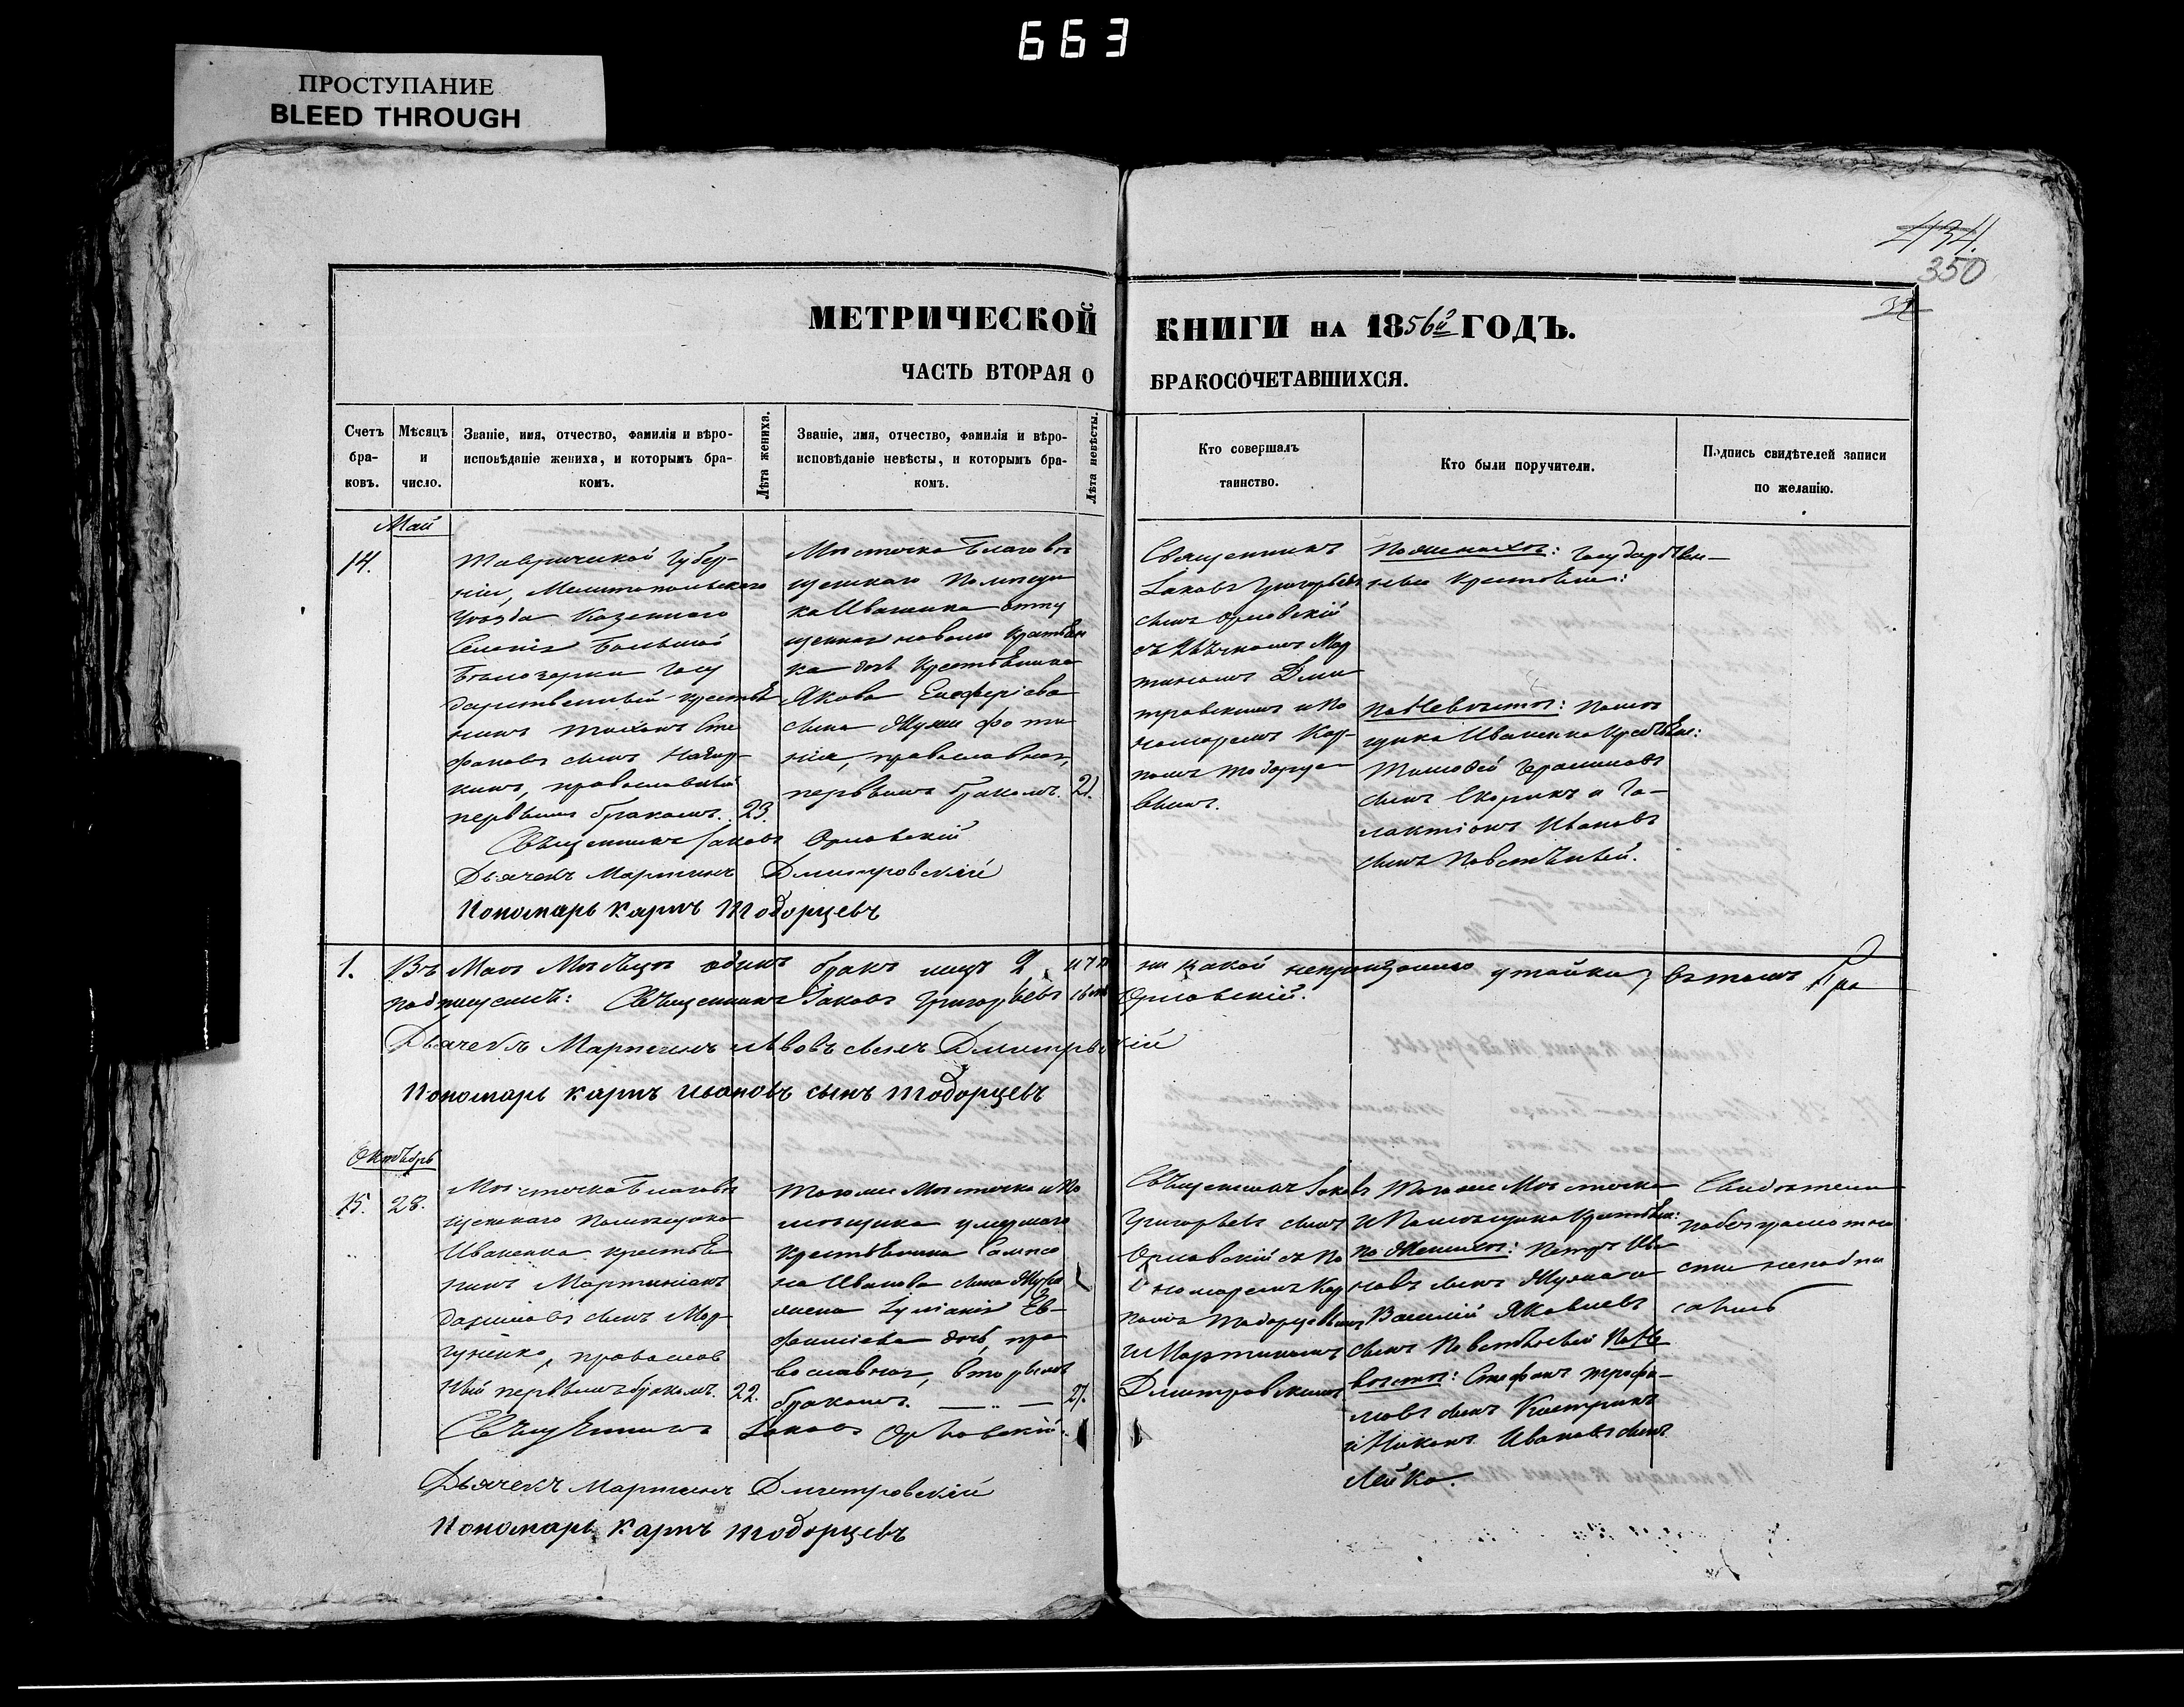 663
ПРОСТУПАНИЕ
BLEED THROUGH
434.
350
МЕТРИЧЕСКОЙ КНИГИ НА 1856й ГОДЪ.
ЧАСТЬ ВТОРАЯ О БРАКОСОЧЕТАВШИХСЯ.
Счетъ браковъ.
Мѣсяцъ и число.
Званіе, имя, отчество, фамилія и вѣро-
исповѣданіе жениха, и которымъ бра-
комъ.
Лѣта жениха.
Званіе, имя, отчество, фамилія и вѣро-
исповѣданіе невѣсты, и которымъ бра-
комъ.
Лѣта невѣсты.
Кто совершалъ
таинство.
Кто были поручители.
Подпись свидѣтелей записи
по желанію.
Май
14.
Таврической Губер-
ніи, Мелитопольскаго
Уѣзда Казеннаго
Селенія Большой
Бѣлозерки Госу
дарственный крестья
нинъ Сте
фановъ сынъ
православный
первымъ бракомъ.
23.
Мѣстечка Благовѣ
щенскаго Помѣщи
ка Иваненка отпу
щенная на волю Крестьян
ка дочь Крестьянина
Якова Елеферіева
сына Фоти
нія, православная,
первымъ бракомъ.
21.
Священникъ
Іаковъ Григорьевъ
сынъ Орловскій
съ Дьячкомъ Мар
тиномъ Дми
тровскимъ и По
номаремъ Кар-
помъ Тодорце-
вымъ.
По женихѣ: Государствен-
ные Крестьяне:
По Невѣстѣ: Помѣ
щика Иваненка Крестьян:
Тимофей Герасимовъ
сынъ Скорикъ и Га-
лактіонъ Ивановъ
сынъ Повстяный.
Священникъ Іаковъ Орловскій
Дьячекъ Мартинъ Дмитровскій
Пономарь Карпъ Тодорцевъ
1. Въ Маѣ Мѣсяцѣ одинъ бракъ лицъ 2, и что ни какой непроизошло утайки, въ томъ
подписуемъ: Священникъ Іаковъ Григорьевъ сынъ Орловскій.
Дьячекъ Мартинъ Львовъ сынъ Дмитровскій
Пономарь Карпъ Ивановъ сынъ Тодорцевъ
Октябрь
15. 28.
Мѣстечка Благовѣ
щенскаго Помѣщика
Иваненка крестья
нинъ Мартиніанъ
сынъ Мар-
православ
ный первымъ бракомъ.
22.
Того же Мѣстечка и По
мѣщика умершаго
Крестьянина Сампсо
на Иванова сына
жена Іуліанія Ев-
фиміева дочь, пра
вославная, вторымъ
бракомъ.
27.
Священникъ Іаковъ
Григорьевъ сынъ
Орловскій съ По
номаремъ Кар
помъ Тодорцевымъ
и Мартиномъ
Дмитровскимъ
Того же Мѣстечка
и Помѣщика Крестьян:
по Женихѣ: Петръ Ива
новъ сынъ и
Василій Яковлевъ
сынъ Повстяный По Не
вѣстѣ: Стефанъ Трофи-
мовъ сынъ Кастрикъ
и Никонъ Ивановъ сынъ
Лейко.
Свидѣтели
по безграмотно
сти неподпи
сались
Священникъ Іаковъ Орловскій
Дьячекъ Мартинъ Дмитровскій
Пономарь Карпъ Тодорцевъ